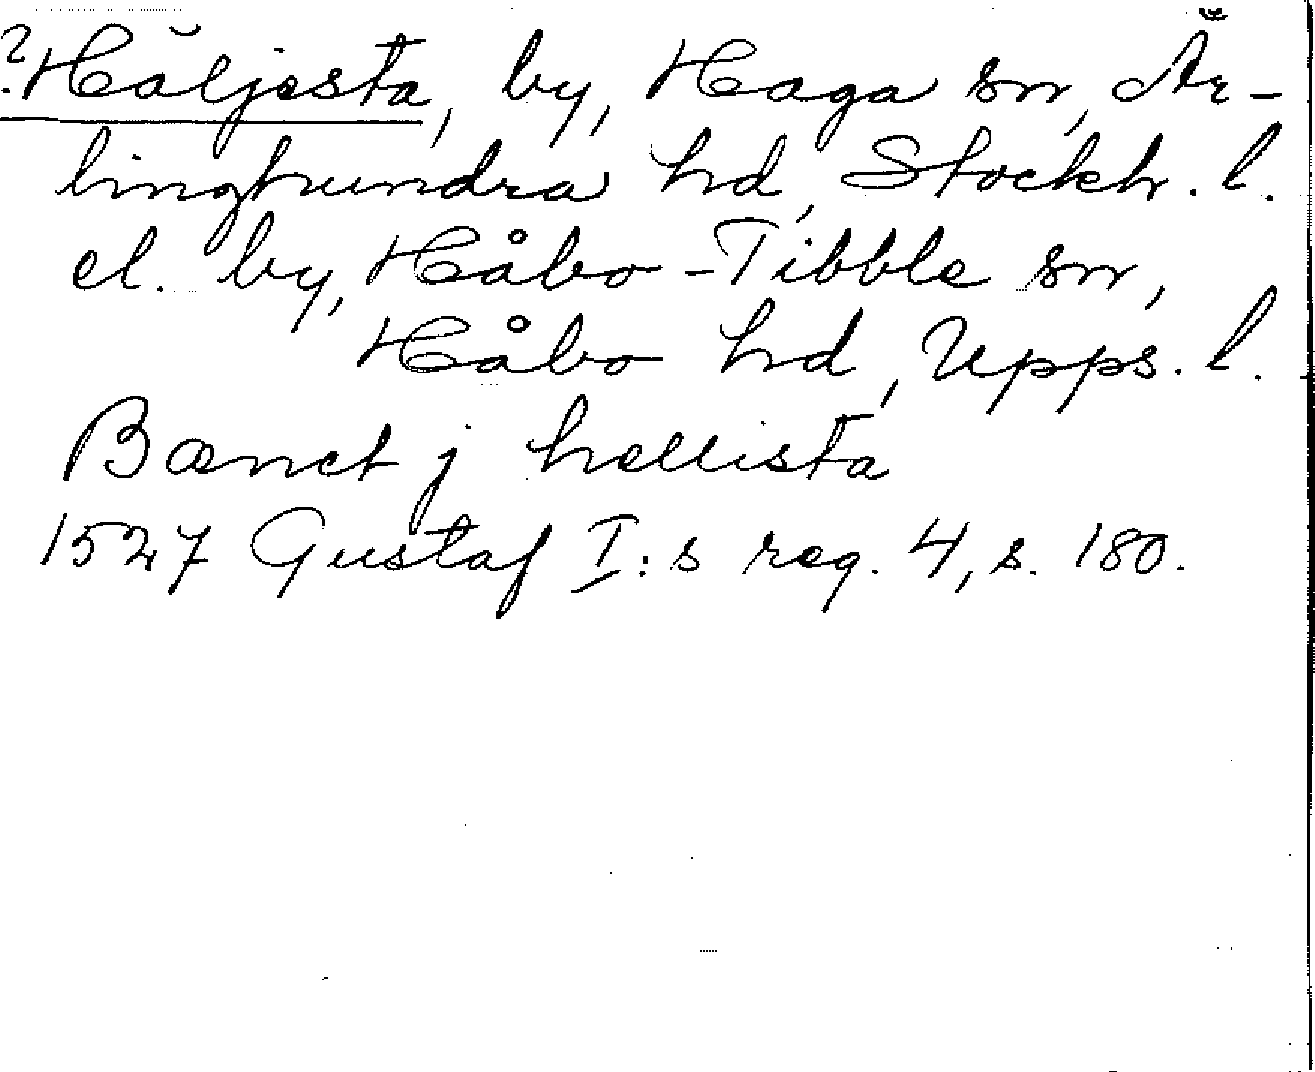 ?Häljesta, by, Haga sn, Är-
linghundra hd, Stockh. l.
el. by, Håbo-Tibble sn,
Håbo hd, Upps. l.
Bænct j hellista
1527 Gustaf I:s reg. 4, s. 180.